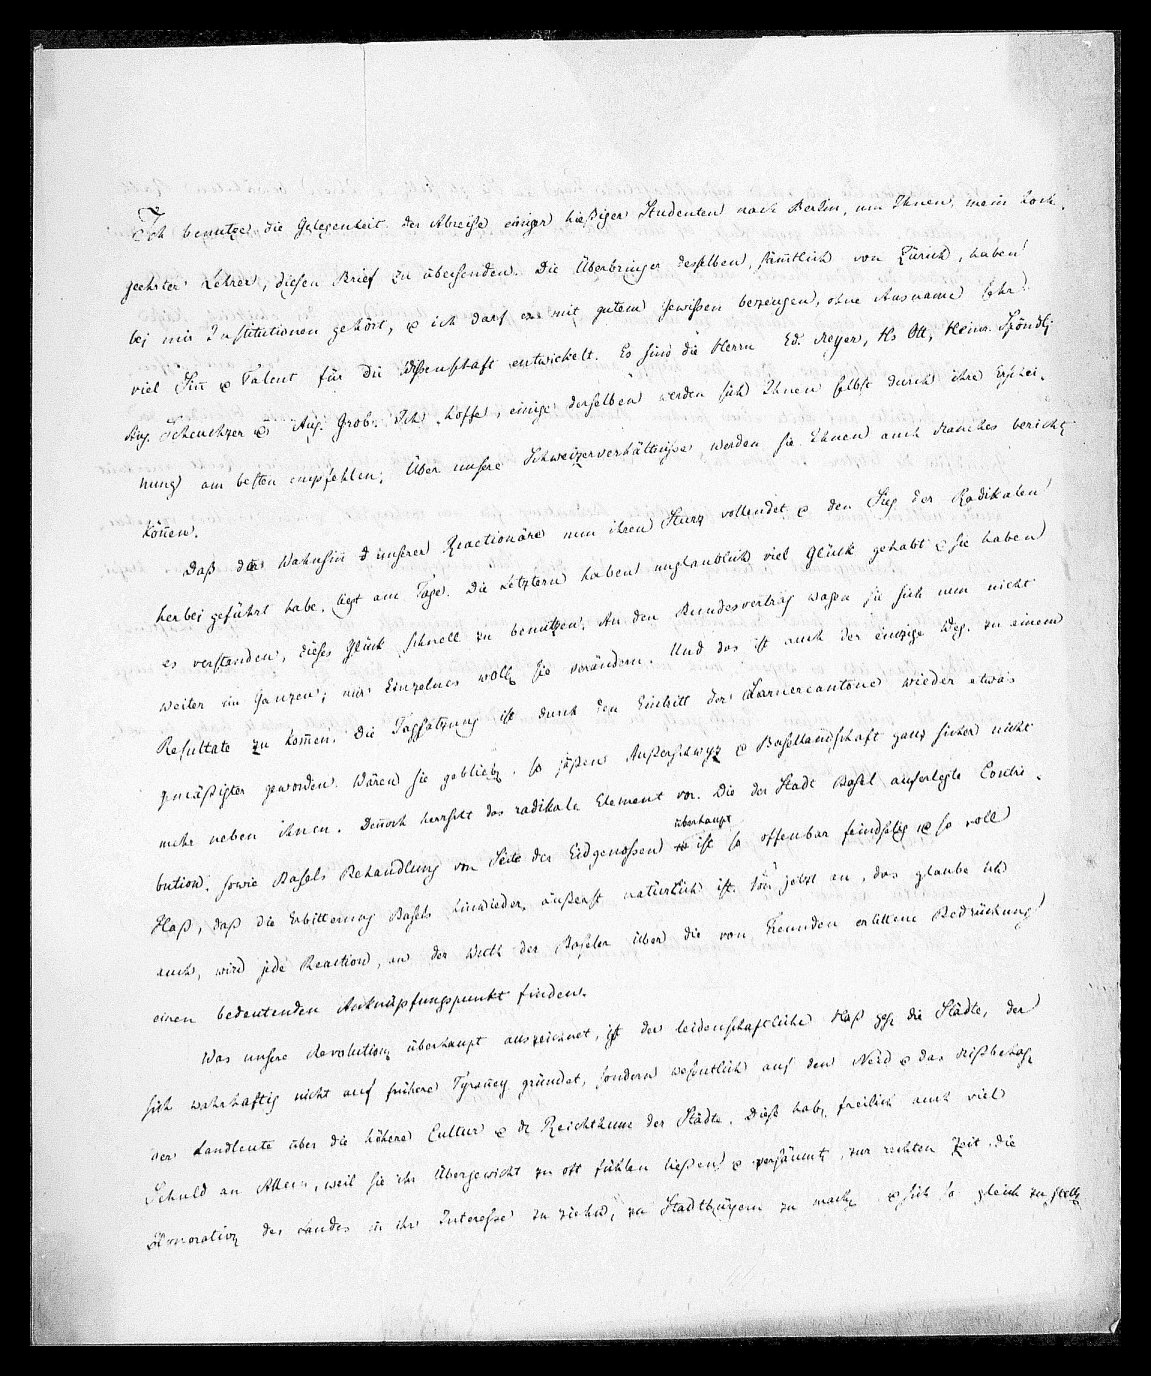 Ich benutze die Gelegenheit der Abreise einiger hiesiger Studenten nach Berlin, um Ihnen, mein hoch-
geehrter Lehrer, diesen Brief zu übersenden. Die Überbringer desselben, sämtlich von Zürich, haben
bei mir Institutionen gehört, & ich darf es mit gutem Gewissen bezeugen, ohne Ausname sehr
viel Sin̄ & Talent für die Wissenschaft entwickelt. Es sind die Herrn Ed. Meyer, Hs Ott, Heinr. Spöndli
Aug. Scheuchzer & Aug. Grob. Ich hoffe, einige derselben werden sich Ihnen selbst durch ihre Erschei-
nung am besten empfehlen; Über unsere Schweizerverhältnisse werden sie Ihnen auch Manches berichten
kön̄en.
Daß der Wahnsin̄ unserer Reactionäre nun ihren Sturz vollendet & den Sieg der Radikalen
herbei geführt habe, liegt am Tage. Die Letztern haben unglaublich viel Glück gehabt & sie haben
es verstanden, dieses Glück schnell zu benutzen. An den Bundesvertrag wagen sie sich nun nicht
weiter im Ganzen; nur Einzelnes wollen sie verändern. Und das ist auch der einzige Weg, zu einem
Resultate zu kom̄en. Die Tagsatzung ist durch den Eintritt der Sarnercantone wieder etwas
gemäßigter geworden. Wären sie geblieben, so säßen Außerschwyz & Basellandschaft ganz sicher nicht
mehr neben ihnen. Den̄och herrscht das radikale Element vor. Die der Stadt Basel auferlegte Contri-
bution, sowie Basels Behandlung von Seite der Eidgenossen überhaupt ist so offenbar feindselig & so voll
Haß, daß die Erbitterung Basels hinwieder äußerst natürlich ist. Von jetzt an, das glaube ich
auch, wird jede Reaction, an der Wuth der Basler über die von Fremden erlittene Bedrückung
einen bedeutenden Anknüpfungspunkt finden.
Was unsere Revolutionen überhaupt auszeichnet, ist der leidenschaftliche Haß gegen die Städte, der
sich wahrhaftig nicht auf frühere Tyran̄ey gründet, sondern wesentlich auf den Neid & das Mißbehagen
der Landleute über die höhere Cultur & den Reichthum der Städte. Diese haben freilich auch viel
Schuld an Allem, weil sie ihr Übergewicht zu oft fühlen ließen & versäumten, zur rechten Zeit die
des Landes in ihr Interesse zu ziehen, zu Stadtbürgern zu machen & sich so gleich zu stellen